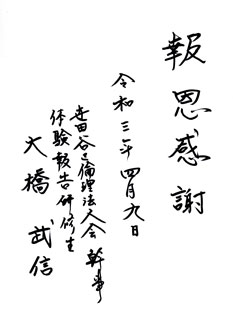 報恩感謝
令和三年四月九日
世田谷区倫理法人会 幹事
体験報告研修生
大橋 武信